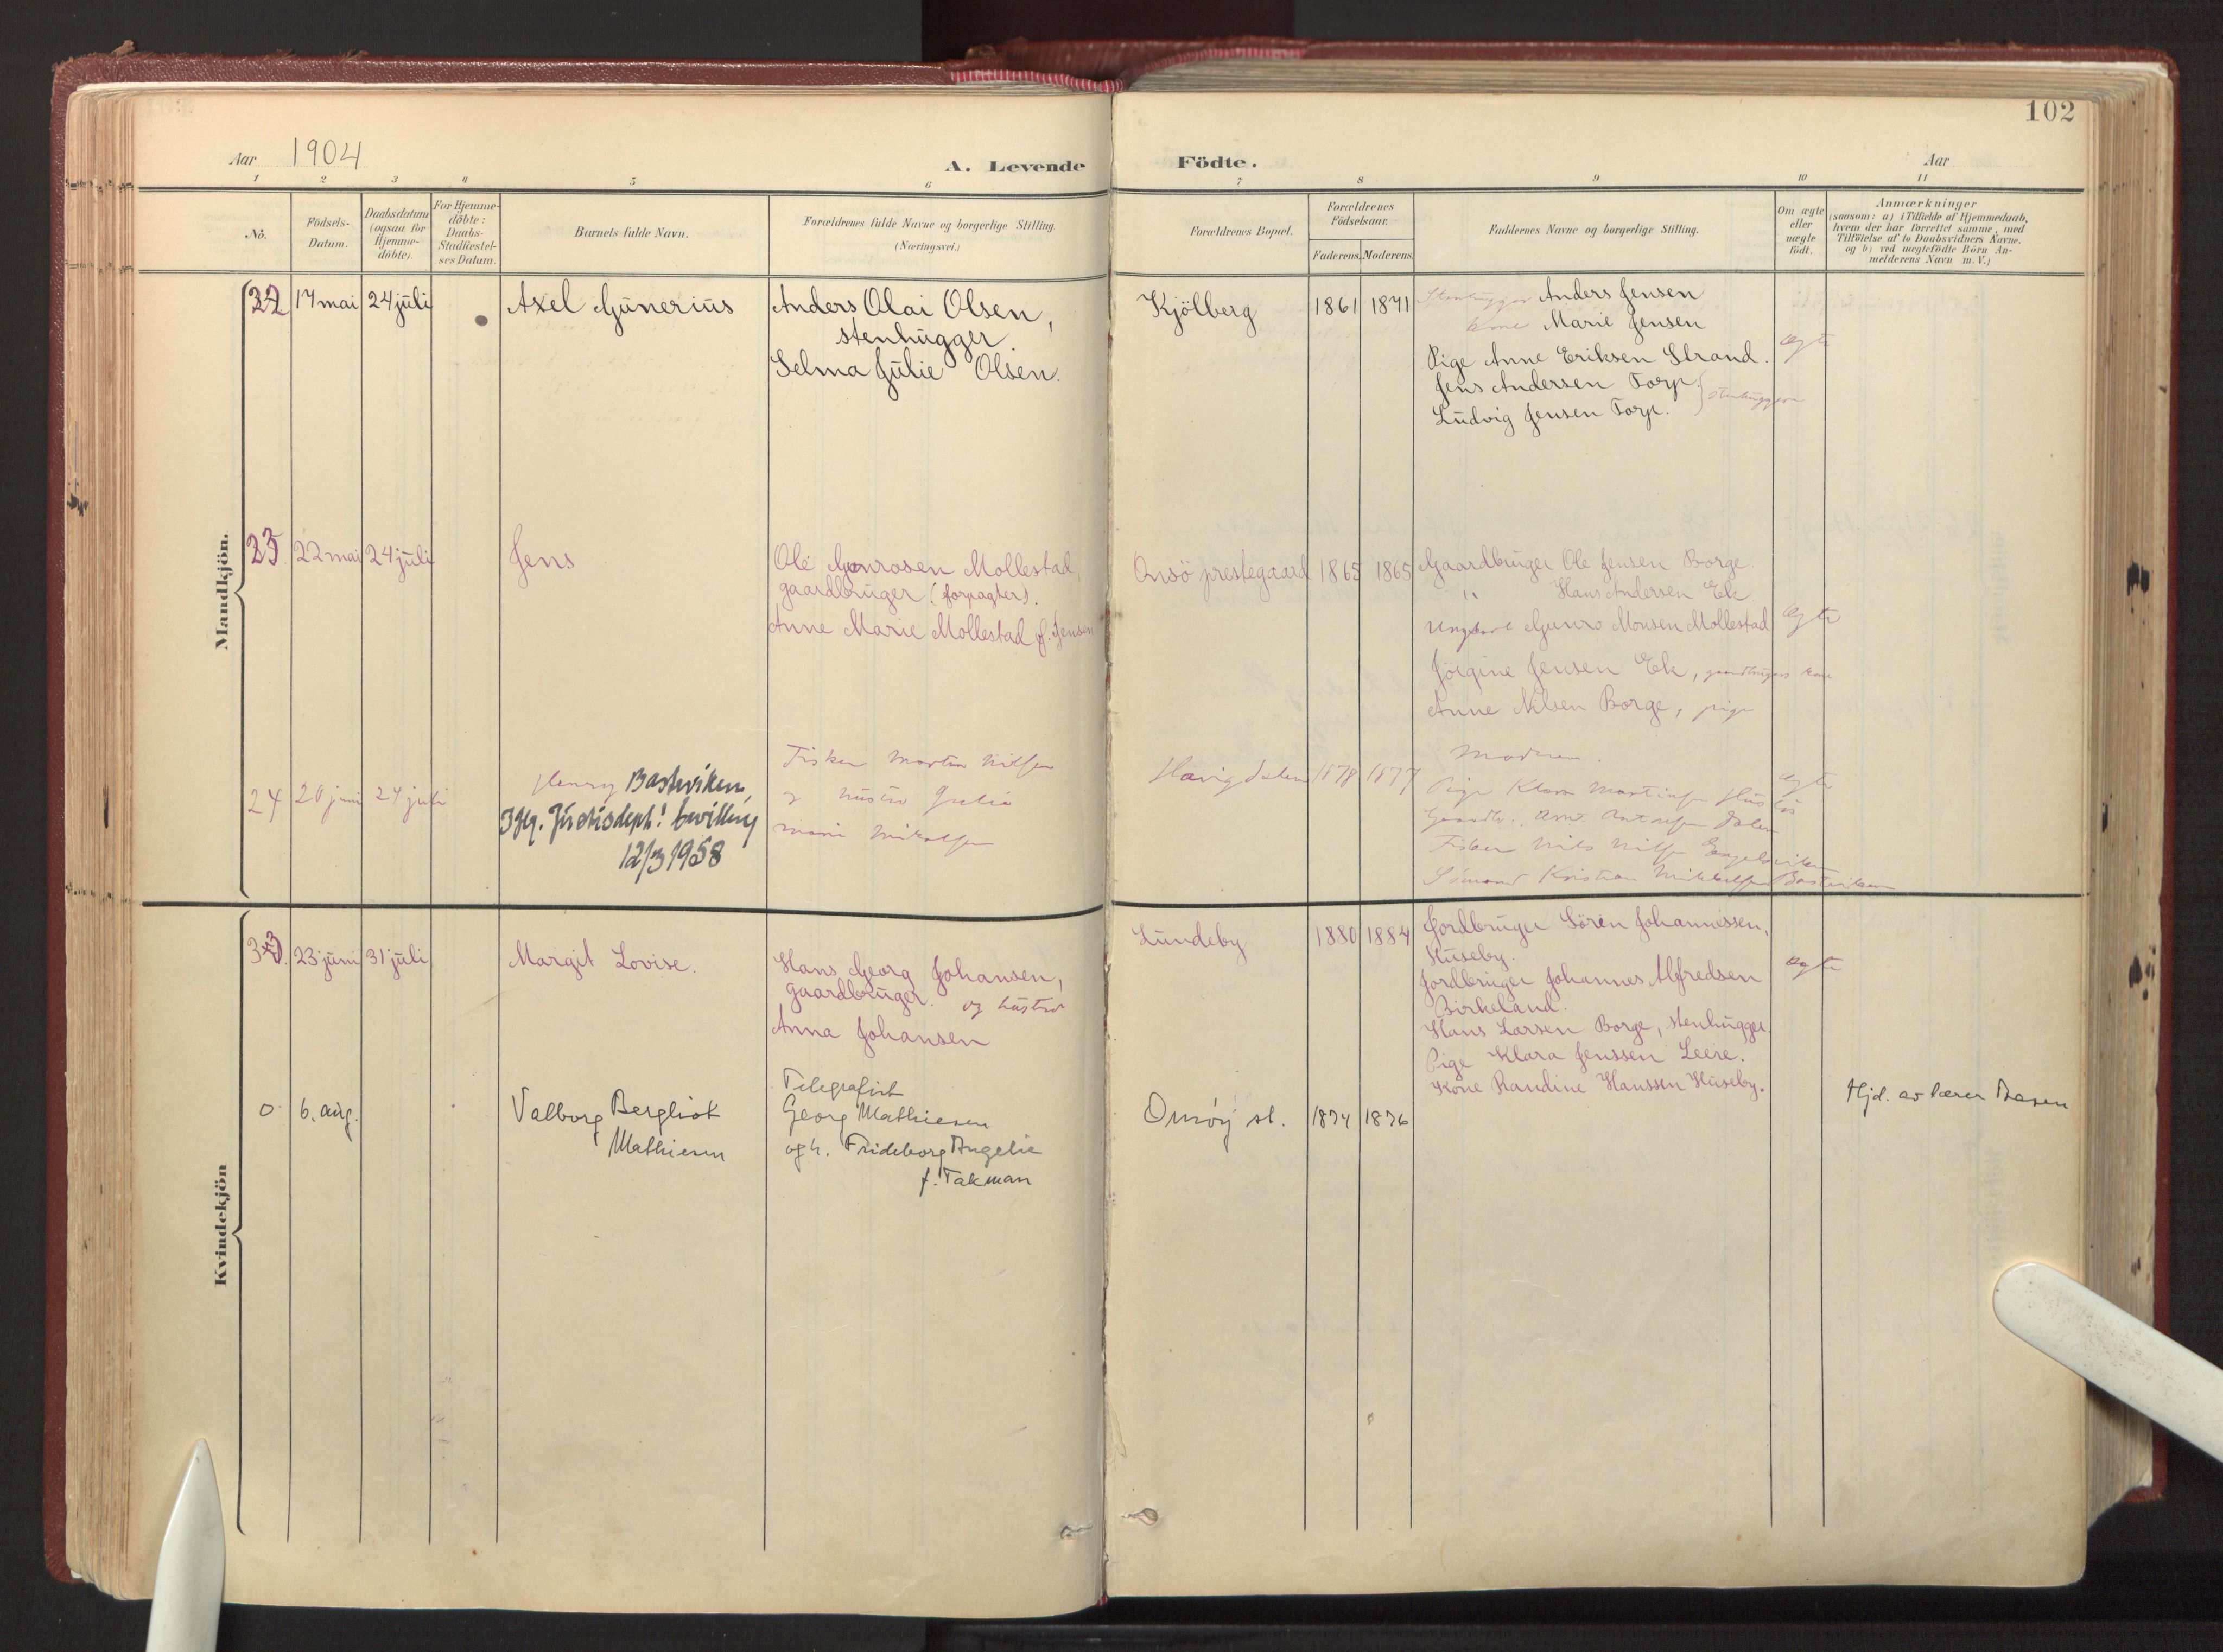 102
Aar 1904
A. Levende Födte.
Aar
1 2 3 4 5 6 7 8 9 10 11
No.
Födsels-
Datum.
Daabsdatum
(ogsaa for
Hjemme-
döbte).
For Hjemme-
döbte:
Daabs-
Stadfæstel-
ses Datum.
Barnets fulde Navn.
Forældrenes fulde Navne og borgerlige Stilling.
(Næringsvei.)
Forældrenes Bopæl.
Forældrenes
Födselsaar.
Faderens. Moderens.
Faddernes Navne og borgerlige Stilling.
Om ægte
eller
uægte
födt.
Anmærkninger
(saasom: a) i Tilfælde af Hjemmedaab,
hvem der har forrettet samme, med
Tilföielse af to Daabsvidners Navne.
og b) ved uægtefödte Börn An-
melderens Navn m.V.)
Mandkjön.
22 17 mai 24 juli
Axel Gunerius
Anders Olai Olsen,
stenhugger.
Selma Julie Olsen.
Kjölberg
1861 1871
Stenhugger Anders Jensen
kone Marie Jensen
Pige Anne Eriksen Strand.
Jens Andersen Torp.
Ludvig Jensen Torp.
stenhuggere
ægte
23 22 mai 24 juli
Jens
Ole Gunrosen Mollestad,
gaardbruger (forpagter).
Anne Marie Mollestad f. Jensen
Onsö prestegaard
1865 1865
Gaardbruger Ole Jensen Borge.
" Hans Andersen Ek
Ungkarl Gunro Monsen Mollestad
Jörgine Jensen Ek, gaardbrugers kone
Anne Nilsen Borge, pige
ægte
24 20 juni 24 juli
Henry Basteviken,
Jflg. Justisdept! bevilling
12/3 1958
Fisker Martin Nilsen
og hustru Julie
Marie Mikalsen
1878 1877
Modren.
Pige Klara Martinsen
Gaardbr. Ant. Antonsen Dalen
Fisker Nils Nilsen Engelsviken
Sömand Kristian Mikkelsen Basteviken
ægte
Kvindekjön
33. 23 juni 31 juli
Margit Lovise.
Hans Georg Johansen,
gaardbruger. og hustru
Anna Johansen
Lundeby
1880 1884
Jordbruger Sören Johannessen,
Huseby.
Jordbruger Johannes Alfredsen
Birkeland.
Hans Larsen Borge, stenhugger
Pige Klara Jenssen Leere.
Kone Randine Hanssen Huseby.
ægte
0. 6. aug.
Valborg Bergliot
Mathiesen
Telegrafist
Georg Mathiesen
og h. Frideborg Angelie
f. Takman
Onsøy st.
1874 1876
Hjd. av lærer Basen